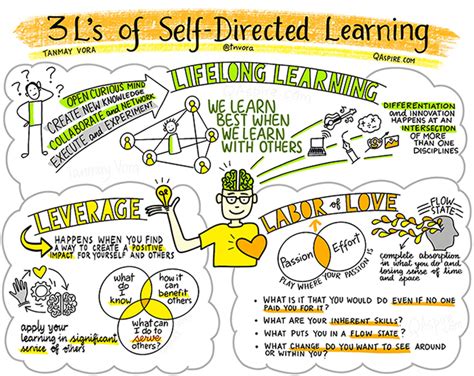 3 L's of Self-Directed Learning
TANMAY VORA
@tnvora
QASPIRE.COM
LIFELONG LEARNING
OPEN CURIOUS MIND
CREATE NEW KNOWLEDGE
COLLABORATE and NETWORK
EXECUTE and EXPERIMENT
WE LEARN
BEST WHEN
WE LEARN
WITH OTHERS
DIFFERENTIATION
and INNOVATION
HAPPENS AT AN
INTERSECTION
OF MORE
THAN ONE
DISCIPLINES
Tanmay Vora
LEVERAGE
HAPPENS WHEN YOU FIND
A WAY TO CREATE A POSITIVE
IMPACT FOR YOURSELF AND OTHERS
what
do I
know?
how it can
benefit
others?
what can I
do to
serve
others?
apply your
learning in significant
service of others
LABOR of LOVE
Passion
Effort
PLAY WHERE YOUR PASSION IS
FLOW
STATE
complete absorption
in what you do and
losing sense of time
and space
WHAT IS IT THAT YOU WOULD DO EVEN IF NO ONE
PAID YOU FOR IT?
WHAT ARE YOUR INHERENT SKILLS?
WHAT PUTS YOU IN A FLOW STATE?
WHAT CHANGE DO YOU WANT TO SEE AROUND
OR WITHIN YOU?